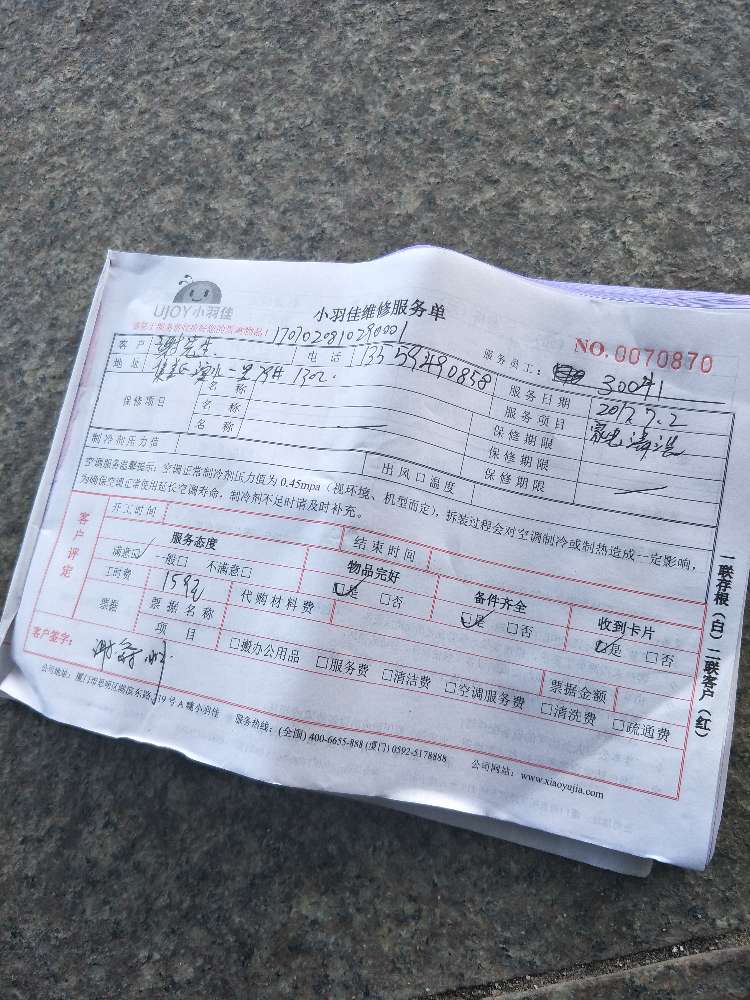 UJOY小羽佳
小羽佳维修服务单
NO. 0070870
1707020810290001
服务员工: 30041
客户 谢先生 电话 13559490858 服务日期 2017.7.2
地址 一里 1302 服务项目 家电清洗
保修项目 名称 保修期限
名称 保修期限
名称 保修期限
制冷剂压力值 出风口温度
空调服务温馨提示: 空调正常制冷剂压力值为 0.45mpa (视环境、机型而定), 拆装过程会对空调制冷或制热造成一定影响,
为确保空调正常使用延长空调寿命, 制冷剂不足时请及时补充。
客户评定
开工时间 结束时间
服务态度 物品完好 备件齐全 收到卡片
满意☑ 一般□ 不满意□ ☑是 □否 ☑是 □否 ☑是 □否
工时费 159元 代购材料费
票据 票据名称 票据金额
项目 □搬办公用品 □服务费 □清洁费 □空调服务费 □清洗费 □疏通费
客户签字:
公司地址: 厦门市思明区湖滨东路 19号A幢小羽佳 服务热线: (全国) 400-6655-888 (厦门) 0592-5178888 公司网站: www.xiaoyujia.com
一联存根(白) 二联客户(红)